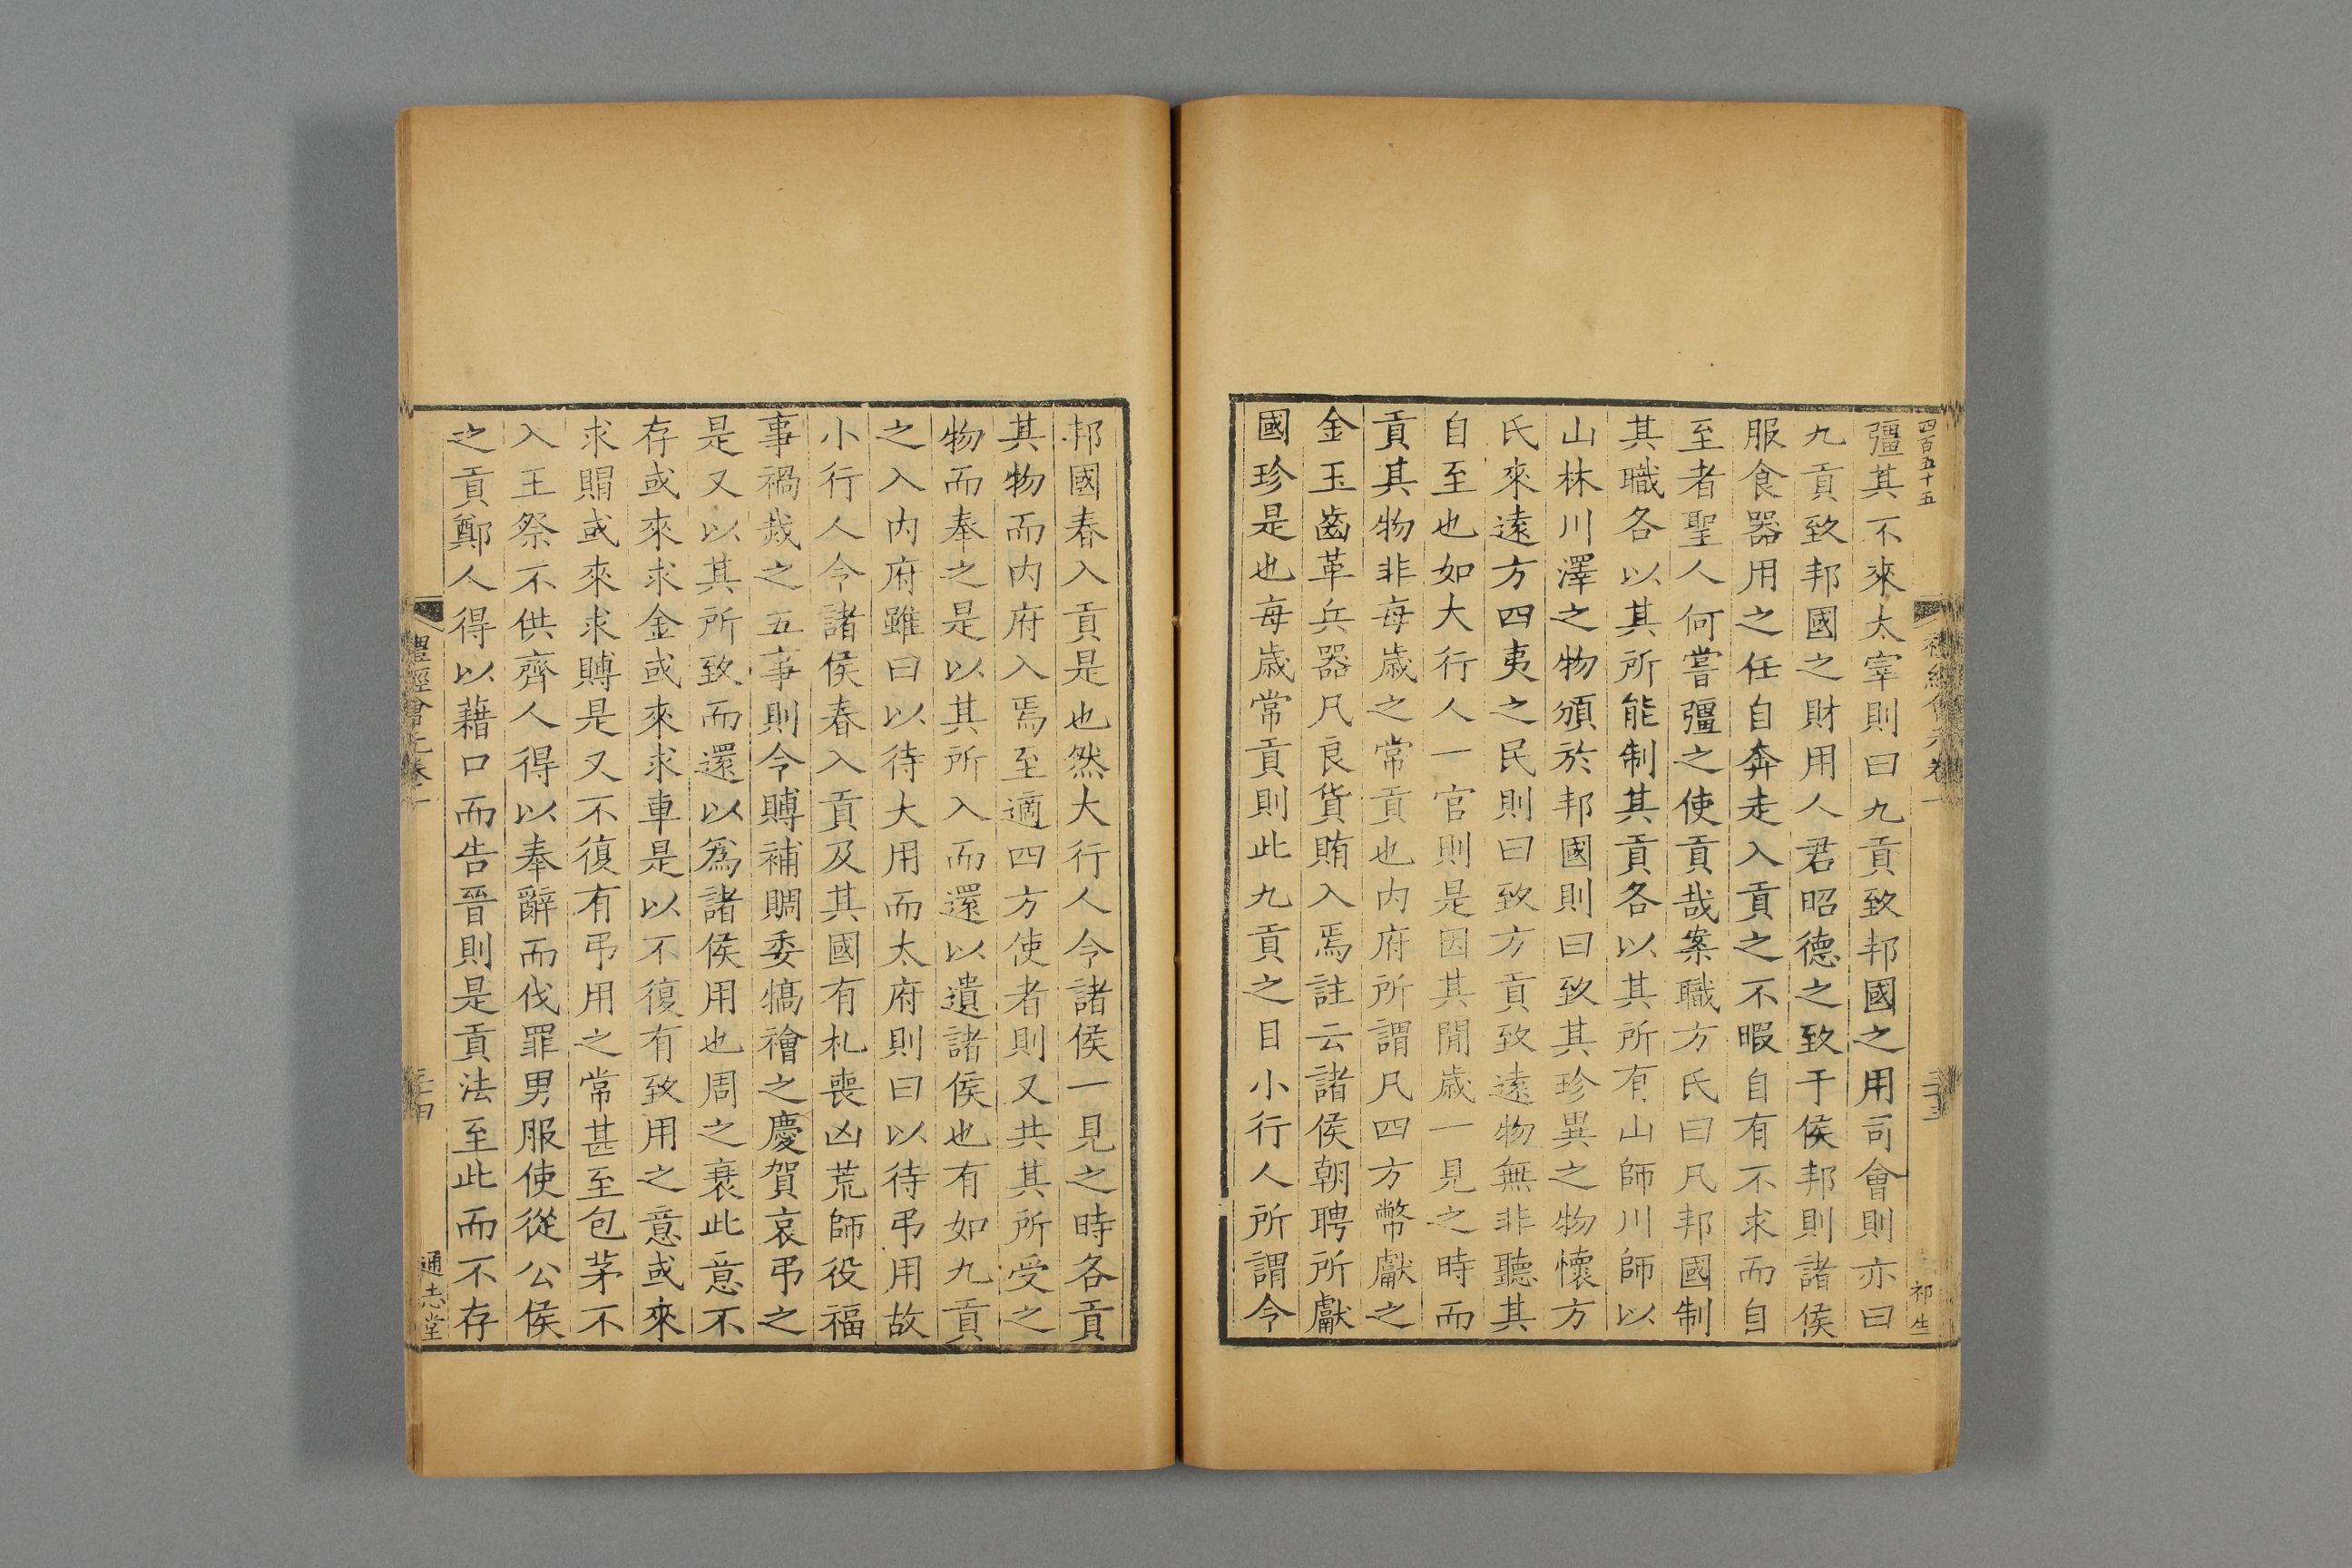 四百五十五
彊其不來太宰則曰九貢致邦國之用司會則亦曰
九貢致邦國之財用人君昭德之致于侯邦則諸侯
服食器用之任自奔走入貢之不暇自有不求而自
至者聖人何嘗彊之使貢哉案職方氏曰凡邦國制
其職各以其所能制其貢各以其所有山師川師以
山林川澤之物頒於邦國則曰致其珍異之物懷方
氏來遠方四夷之民則曰致方貢致遠物無非聽其
自至也如大行人一官則是因其間歲一見之時而
貢其物非每歲之常貢也内府所謂凡四方幣獻之
金玉齒革兵器凡良貨賄入焉註云諸侯朝聘所獻
國珍是也每歲常貢則此九貢之目小行人所謂令
祁生
邦國春入貢是也然大行人令諸侯一見之時各貢
其物而内府入焉至適四方使者則又共其所受之
物而奉之是以其所入而還以遺諸侯也有如九貢
之入内府雖曰以待大用而太府則曰以待弔用故
小行人令諸侯春入貢及其國有札喪凶荒師役福
事禍烖之五事則令賻補賙委犒禬之慶賀哀弔之
是又以其所致而還以爲諸侯用也周之衰此意不
存或來求金或來求車是以不復有致用之意或來
求賵或來求賻是又不復有弔用之常甚至包茅不
入王祭不供齊人得以奉辭而伐罪男服使從公侯
之貢鄭人得以藉口而告晉則是貢法至此而不存
禮經會元卷一
通志堂